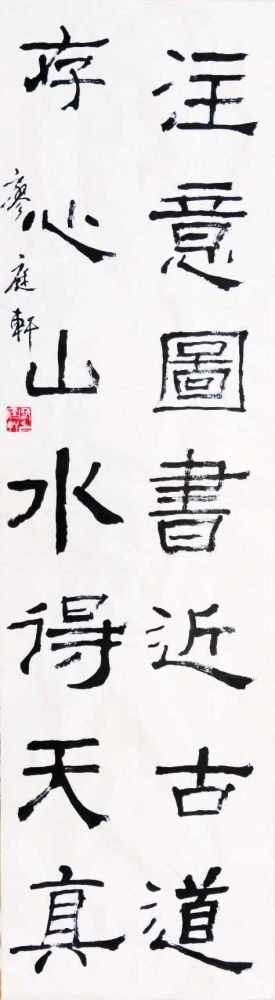 注意圖書近古道
存心山水得天真
廖庭軒